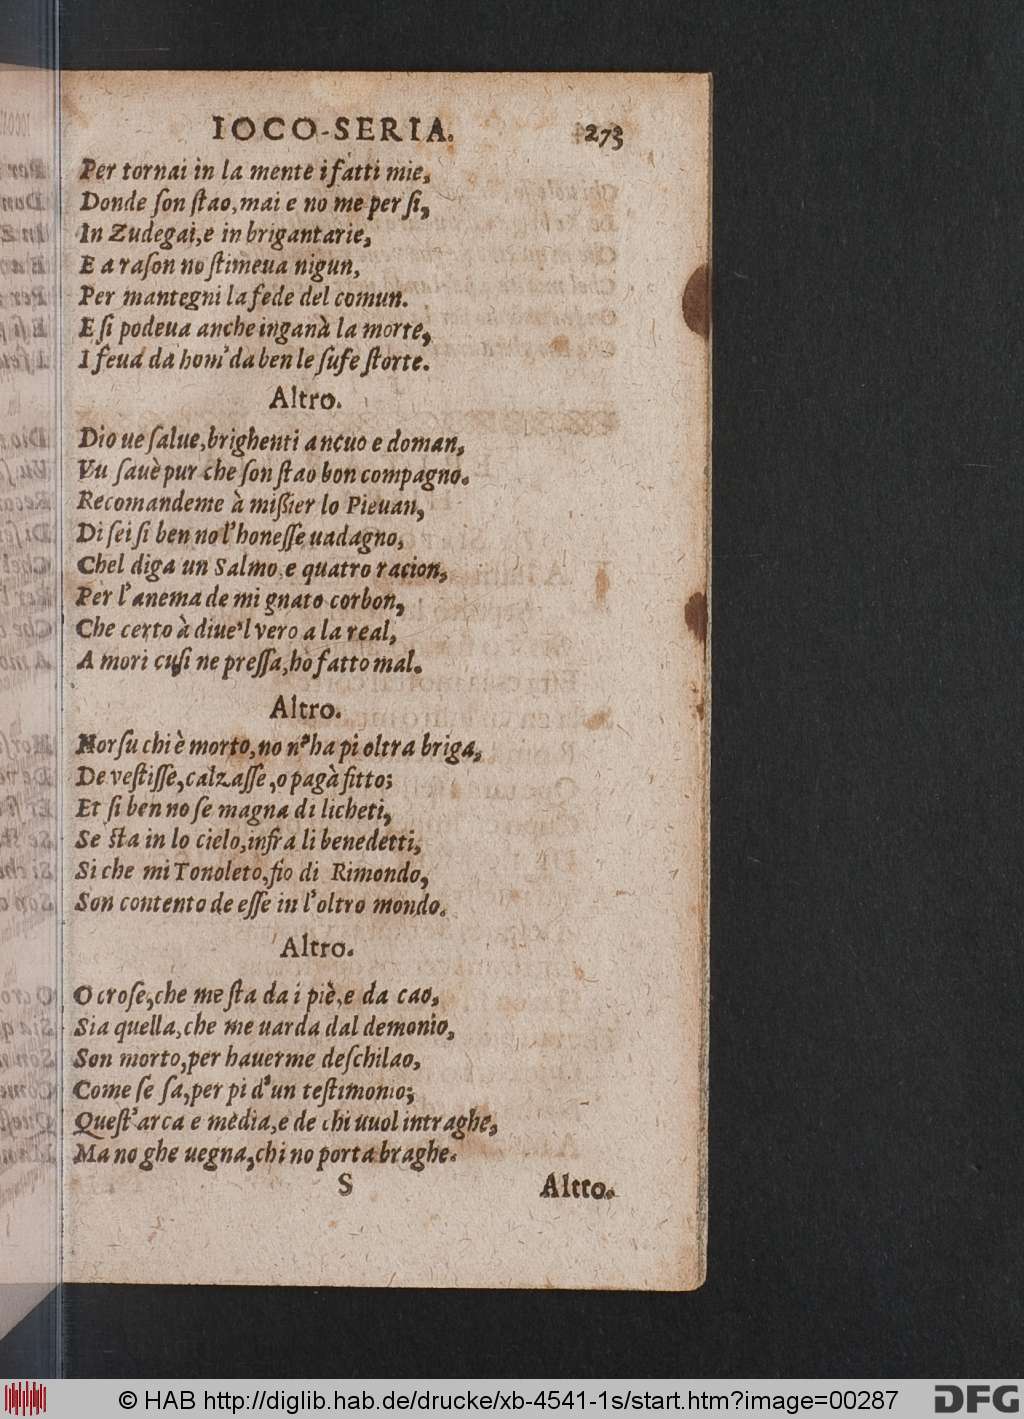 IOCO-SERIA. 273
Per tornai in la mente i fatti mie,
Donde ſon ſtao, mai e no me per ſi,
In Zudegai, e in brigantarie,
E a raſon no ſtimeua nigun,
Per mantegni la fede del comun.
E ſi podeua anche inganà la morte,
I feua da hom' da ben le ſuſe ſtorte.
Altro.
Dio ue ſalue, brighenti ancuo e doman,
Vu ſauè pur che ſon ſtao bon compagno.
Recomandeme à miſſier lo Pieuan,
Di ſei ſi ben no l'honeſſe uadagno,
Chel diga un Salmo, e quatro racion,
Per l'anema de mi gnato corbon,
Che certo à diue'l vero a la real,
A mori cuſi ne preſſa, hò fatto mal.
Altro.
Horſu chi è morto, no n'ha pi oltra briga,
De veſtiſſe, calzaſſe, o pagà fitto;
Et ſi ben no ſe magna di licheti,
Se ſta in lo cielo, infra li benedetti,
Si che mi Tonoleto, fio di Rimondo,
Son contento de eſſe in l'oltro mondo.
Altro.
O croſe, che me ſta da i piè, e da cao,
Sia quella, che me uarda dal demonio,
Son morto, per hauerme deſchilao,
Come ſe ſa, per pi d'un teſtimonio;
Queſt'arca e media, e de chi uuol intraghe,
Ma no ghe uegna, chi no porta braghe.
S Altto.
© HAB http://diglib.hab.de/drucke/xb-4541-1s/start.htm?image=00287 DFG